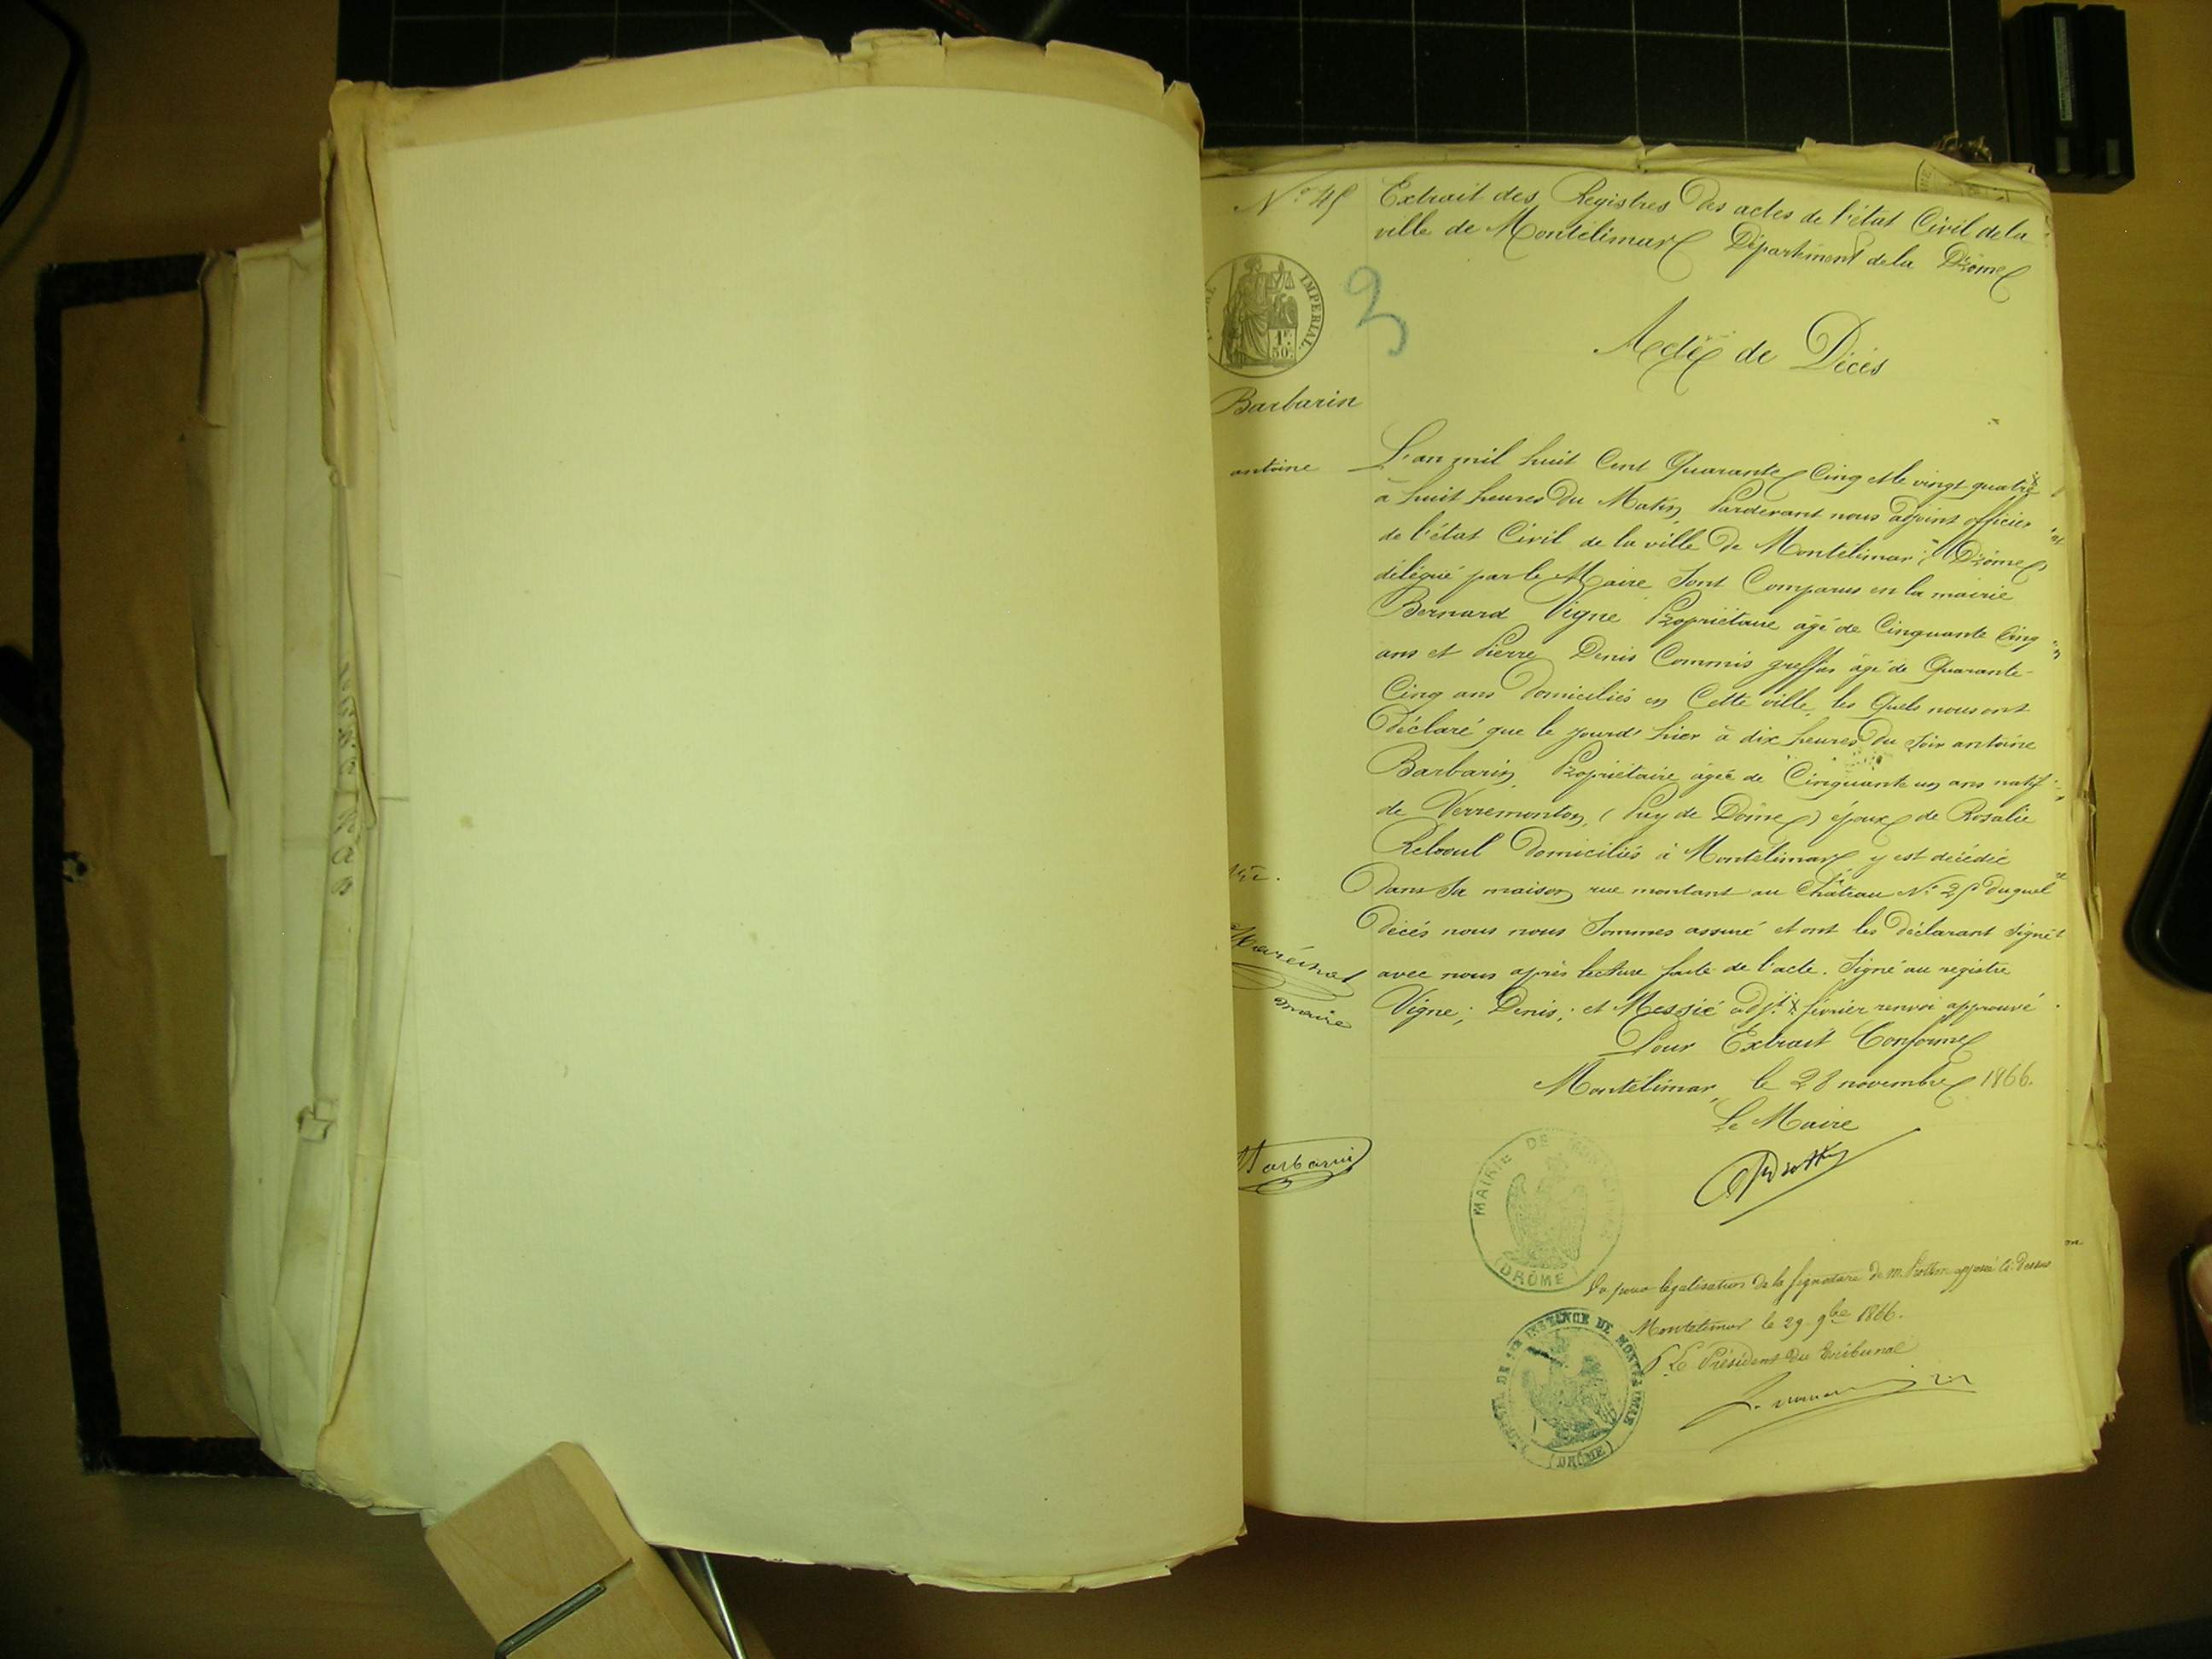 N° 45
Extrait des Registres des actes de l'état Civil de la
ville de Montélimar Département de la Drôme
IMPERIAL
1F
50C
3
Acte de Décès
Barbarin
antoine
L'an mil huit Cent Quarante Cinq et le vingt quatre
à huit heures du Matin, Pardevant nous adjoint officier
de l'état Civil de la ville de Montélimar (Drôme)
délégué par le Maire Sont Comparus en la mairie
Bernard Vigne Propriétaire âgé de Cinquante Cinq
ans et Pierre Denis Commis greffier âgé de Quarante-
Cinq ans domiciliés en Cette ville, les Quels nous ont
Déclaré que le jourd'hier à dix heures du soir antoine
Barbarin, Propriétaire âgée de Cinquante un ans natif
de Verremonton, (Puy de Dôme) époux de Rosalie
Reboul domiciliés à Montélimar y est décédé
Dans Sa maison rue montant au Château N° 25 duquel
Décès nous nous Sommes assuré et ont les déclarant signé
avec nous après lecture faite de l'acte. Signé au registre
Vigne; Denis; et Messié adjt. x février renvoi approuvé
Pour Extrait Conforme
Montélimar, le 28 novembre 1866.
Le Maire
Maréchal
maire
Barbarin
MAIRIE DE MONTÉLIMAR
(DRÔME)
Vu pour légalisation de la signature de m. apposée ci-dessus
Montélimar le 29 9bre 1866.
Pr Le Président du Tribunal
INSTANCE DE MONTÉLIMAR
(DRÔME)